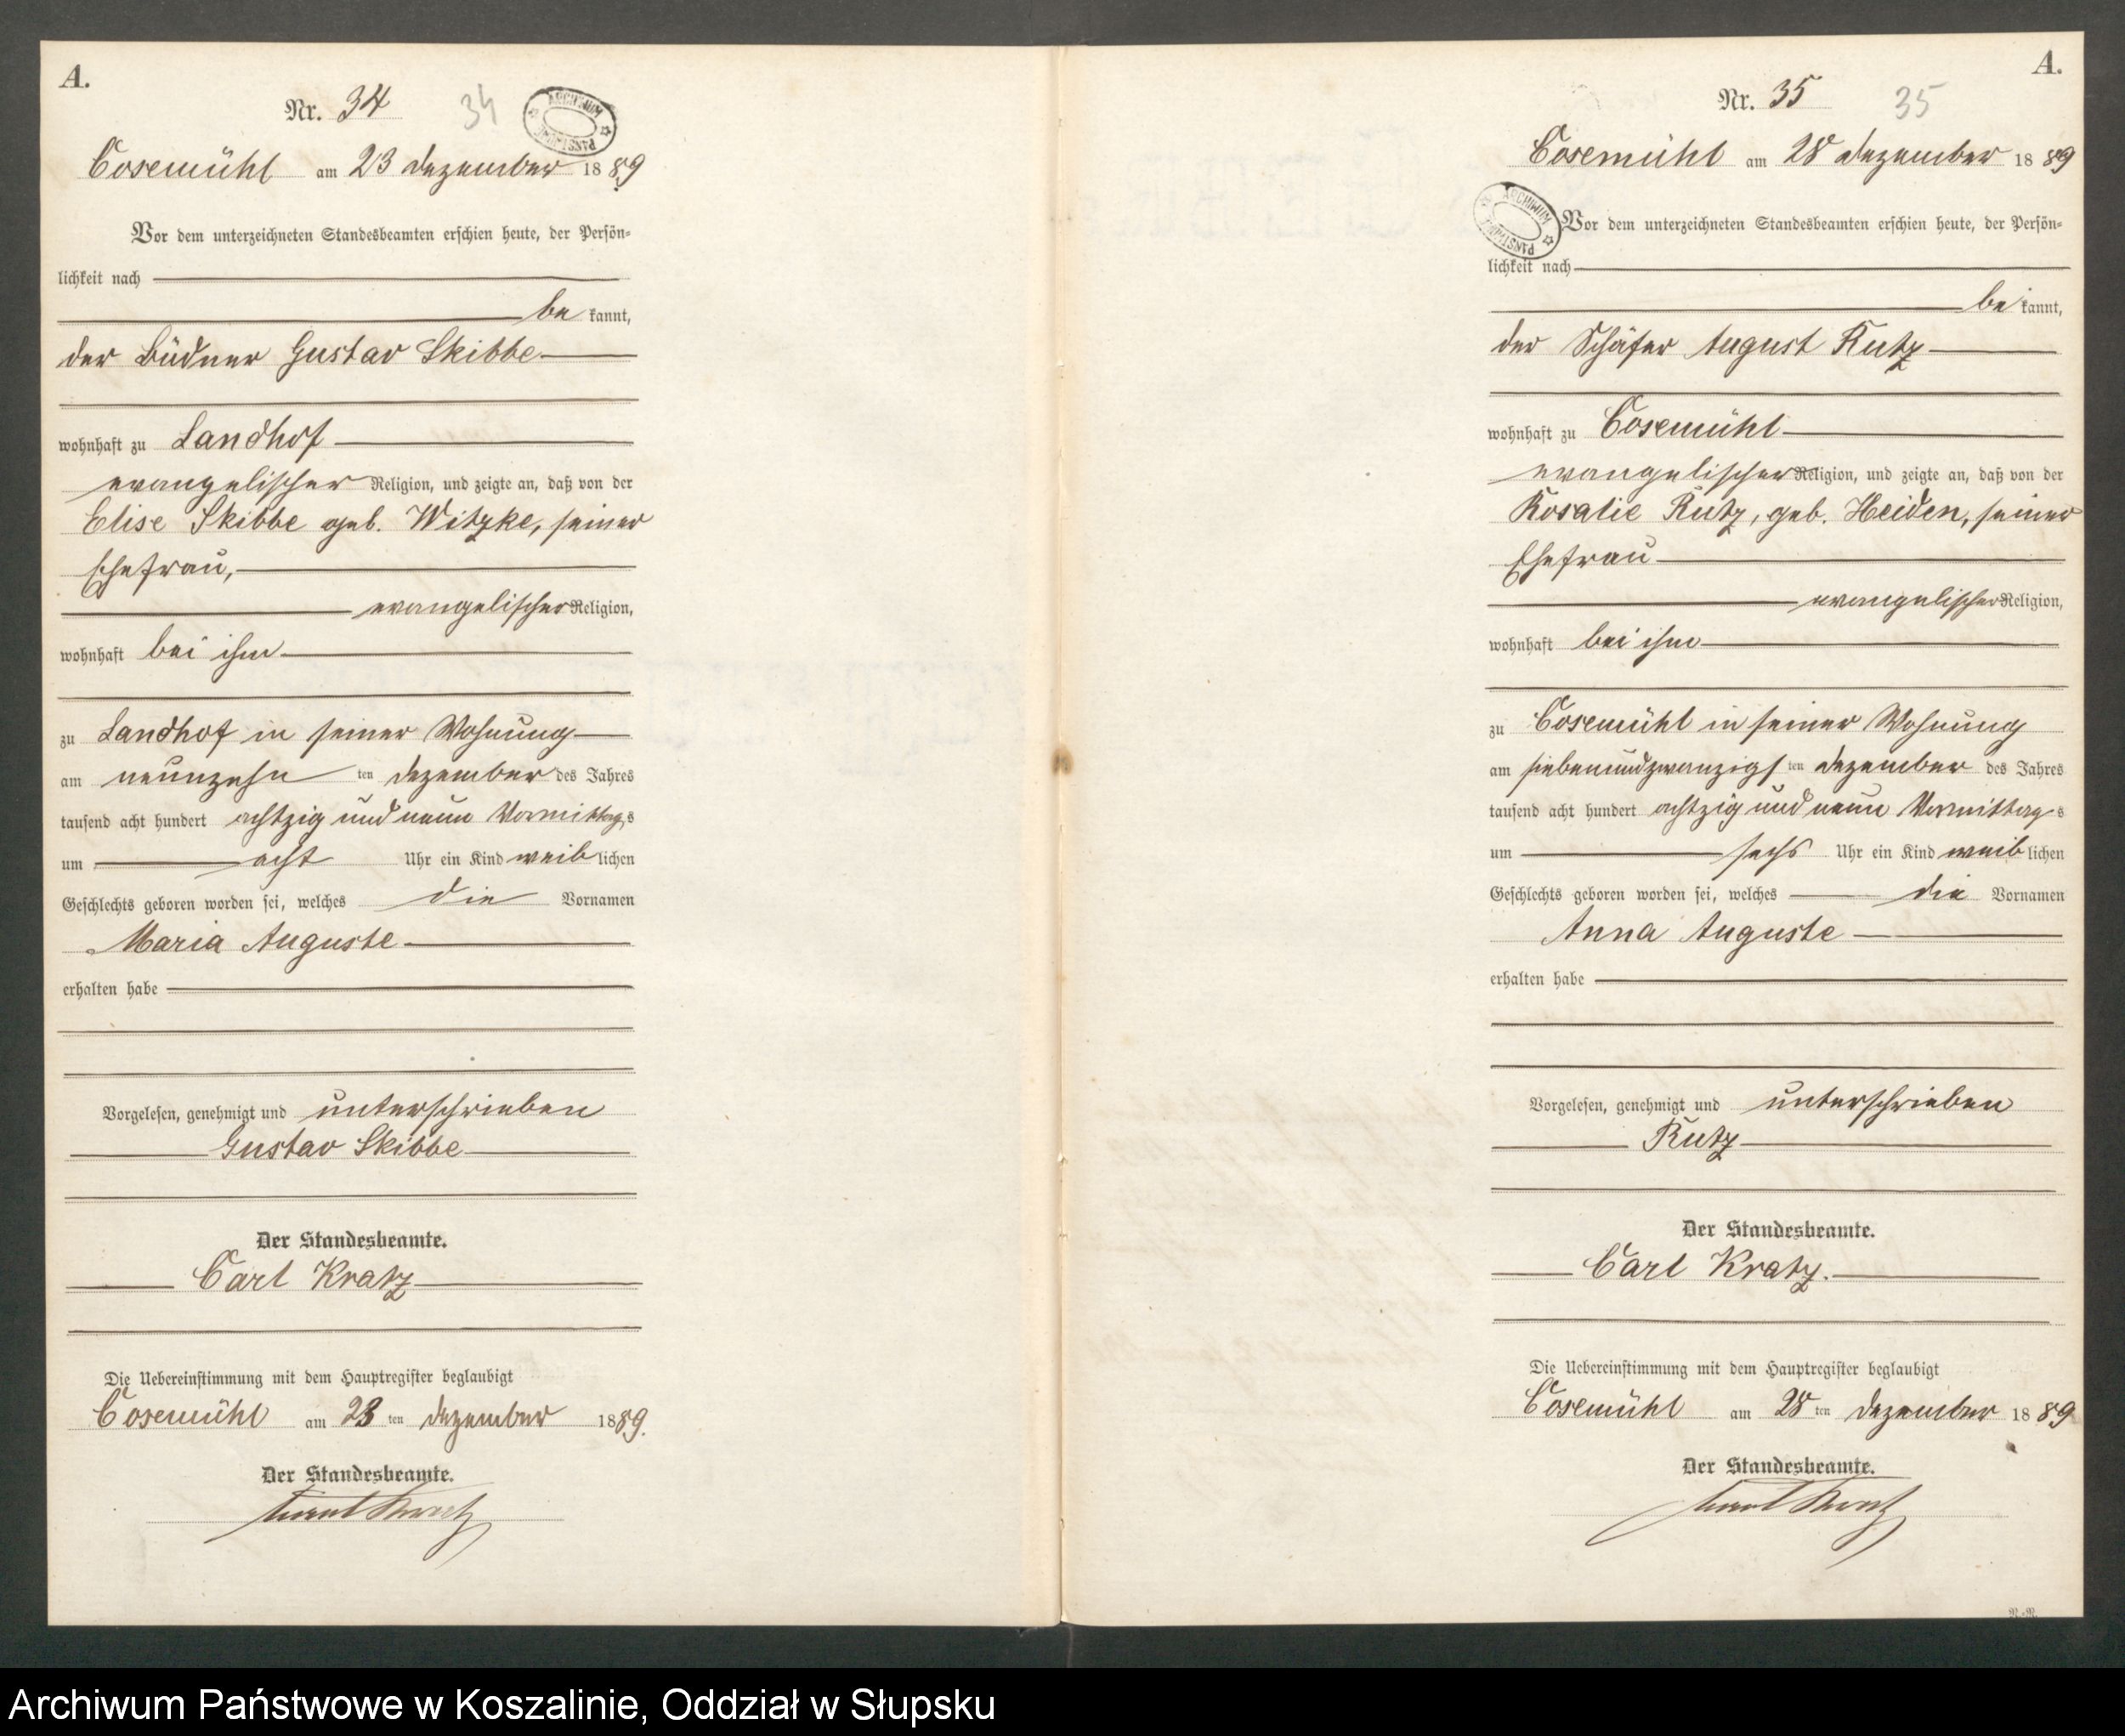 A.
Nr. 34 34
ARCHIWUM PAŃSTWOWE
Cosemühl am 23 Dezember 1889
Vor dem unterzeichneten Standesbeamten erschien heute, der Persön-
lichkeit nach
bekannt,
der Büdner Gustav Skibbe
wohnhaft zu Landhof
evangelischer Religion, und zeigte an, daß von der
Elise Skibbe geb. Witzke, seiner
Ehefrau,
evangelischer Religion,
wohnhaft bei ihm
zu Landhof in seiner Wohnung
am neunzehn ten Dezember des Jahres
tausend acht hundert achtzig und neun Vormittags
um acht Uhr ein Kind weiblichen
Geschlechts geboren worden sei, welches die Vornamen
Maria Auguste
erhalten habe
Vorgelesen, genehmigt und unterschrieben
Gustav Skibbe
Der Standesbeamte.
Carl Kratz
Die Uebereinstimmung mit dem Hauptregister beglaubigt
Cosemühl am 23 ten Dezember 1889.
Der Standesbeamte.
Carl Kratz
A.
Nr. 35 35
Cosemühl am 28 Dezember 1889
ARCHIWUM PAŃSTWOWE
Vor dem unterzeichneten Standesbeamten erschien heute, der Persön-
lichkeit nach
bekannt,
der Schäfer August Rutz
wohnhaft zu Cosemühl
evangelischer Religion, und zeigte an, daß von der
Rosalie Rutz, geb. Heiden, seiner
Ehefrau
evangelischer Religion,
wohnhaft bei ihm
zu Cosemühl in seiner Wohnung
am siebenundzwanzigs ten Dezember des Jahres
tausend acht hundert achtzig und neun Vormittags
um sechs Uhr ein Kind weiblichen
Geschlechts geboren worden sei, welches die Vornamen
Anna Auguste
erhalten habe
Vorgelesen, genehmigt und unterschrieben
Rutz
Der Standesbeamte.
Carl Kratz.
Die Uebereinstimmung mit dem Hauptregister beglaubigt
Cosemühl am 28 ten Dezember 1889
Der Standesbeamte.
Carl Kratz
Archiwum Państwowe w Koszalinie, Oddział w Słupsku